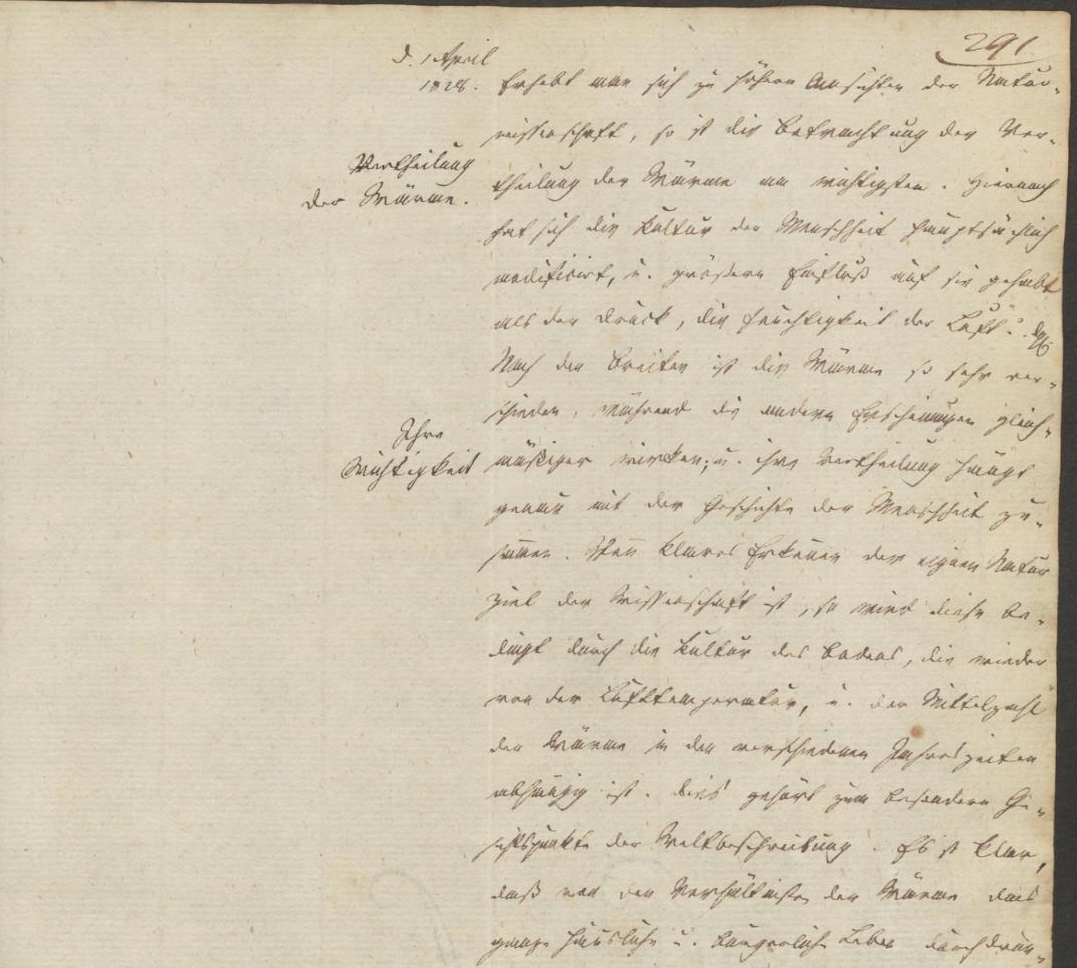 291
d. 1 April
1828.
Vertheilung
der Wärme.
Ihre
Wichtigkeit
Erhebt man sich zu höhern Ansichten der Natur-
wissenschaft, so ist die Betrachtung der Ver-
theilung der Wärme am wichtigsten. Hiernach
hat sich die Kultur der Menschheit hauptsächlich
modificirt, u. größern Einfluß auf sie gehabt
als der Druck, die Feuchtigkeit der Luft u.
Nach den Breiten ist die Wärme so sehr ver-
schieden, während die andern Erscheinungen gleich-
mäßiger wirken; u. ihre Vertheilung hängt
genau mit der Geschichte der Menschheit zu-
sam̄en. Wen̄ klares Erken̄en der eignen Natur
Ziel der Wissenschaft ist, so wird diese be-
dingt durch die Kultur des Bodens, die wieder
von der Lufttemperatur, u. der Mittelzahl
der Wärme in den verschiedenen Jahreszeiten
abhängig ist. Dies gehört zum besondern Ge-
sichtspunkte der Weltbeschreibung. Es ist klar,
daß von den Verhältnißen der Wärme das
ganze häusliche u. bürgerliche Leben durchdrun-